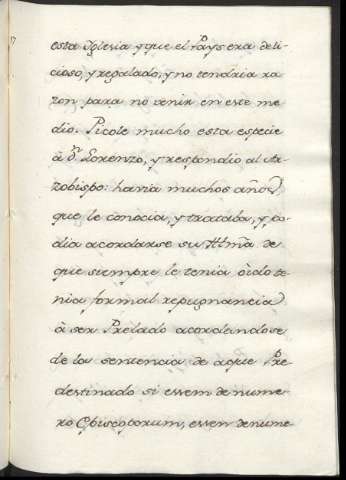 esta Iglesia y que el Pays era deli-
cioso, y regalado, y no tendria ra-
zon para no venir en este me-
dio. Picole mucho esta especie
à Dn Lorenzo, y respondio al Ar-
zobispo: havia muchos años
que le conocia, y trataba, y po-
dia acordarse su Illma de
que siempre le tenia òido te-
nia formal repugnancia
à ser Prelado acordandose
de la sentencia de aquel Pre-
destinado si essem de nume-
ro Episcoporum, essem de nume-